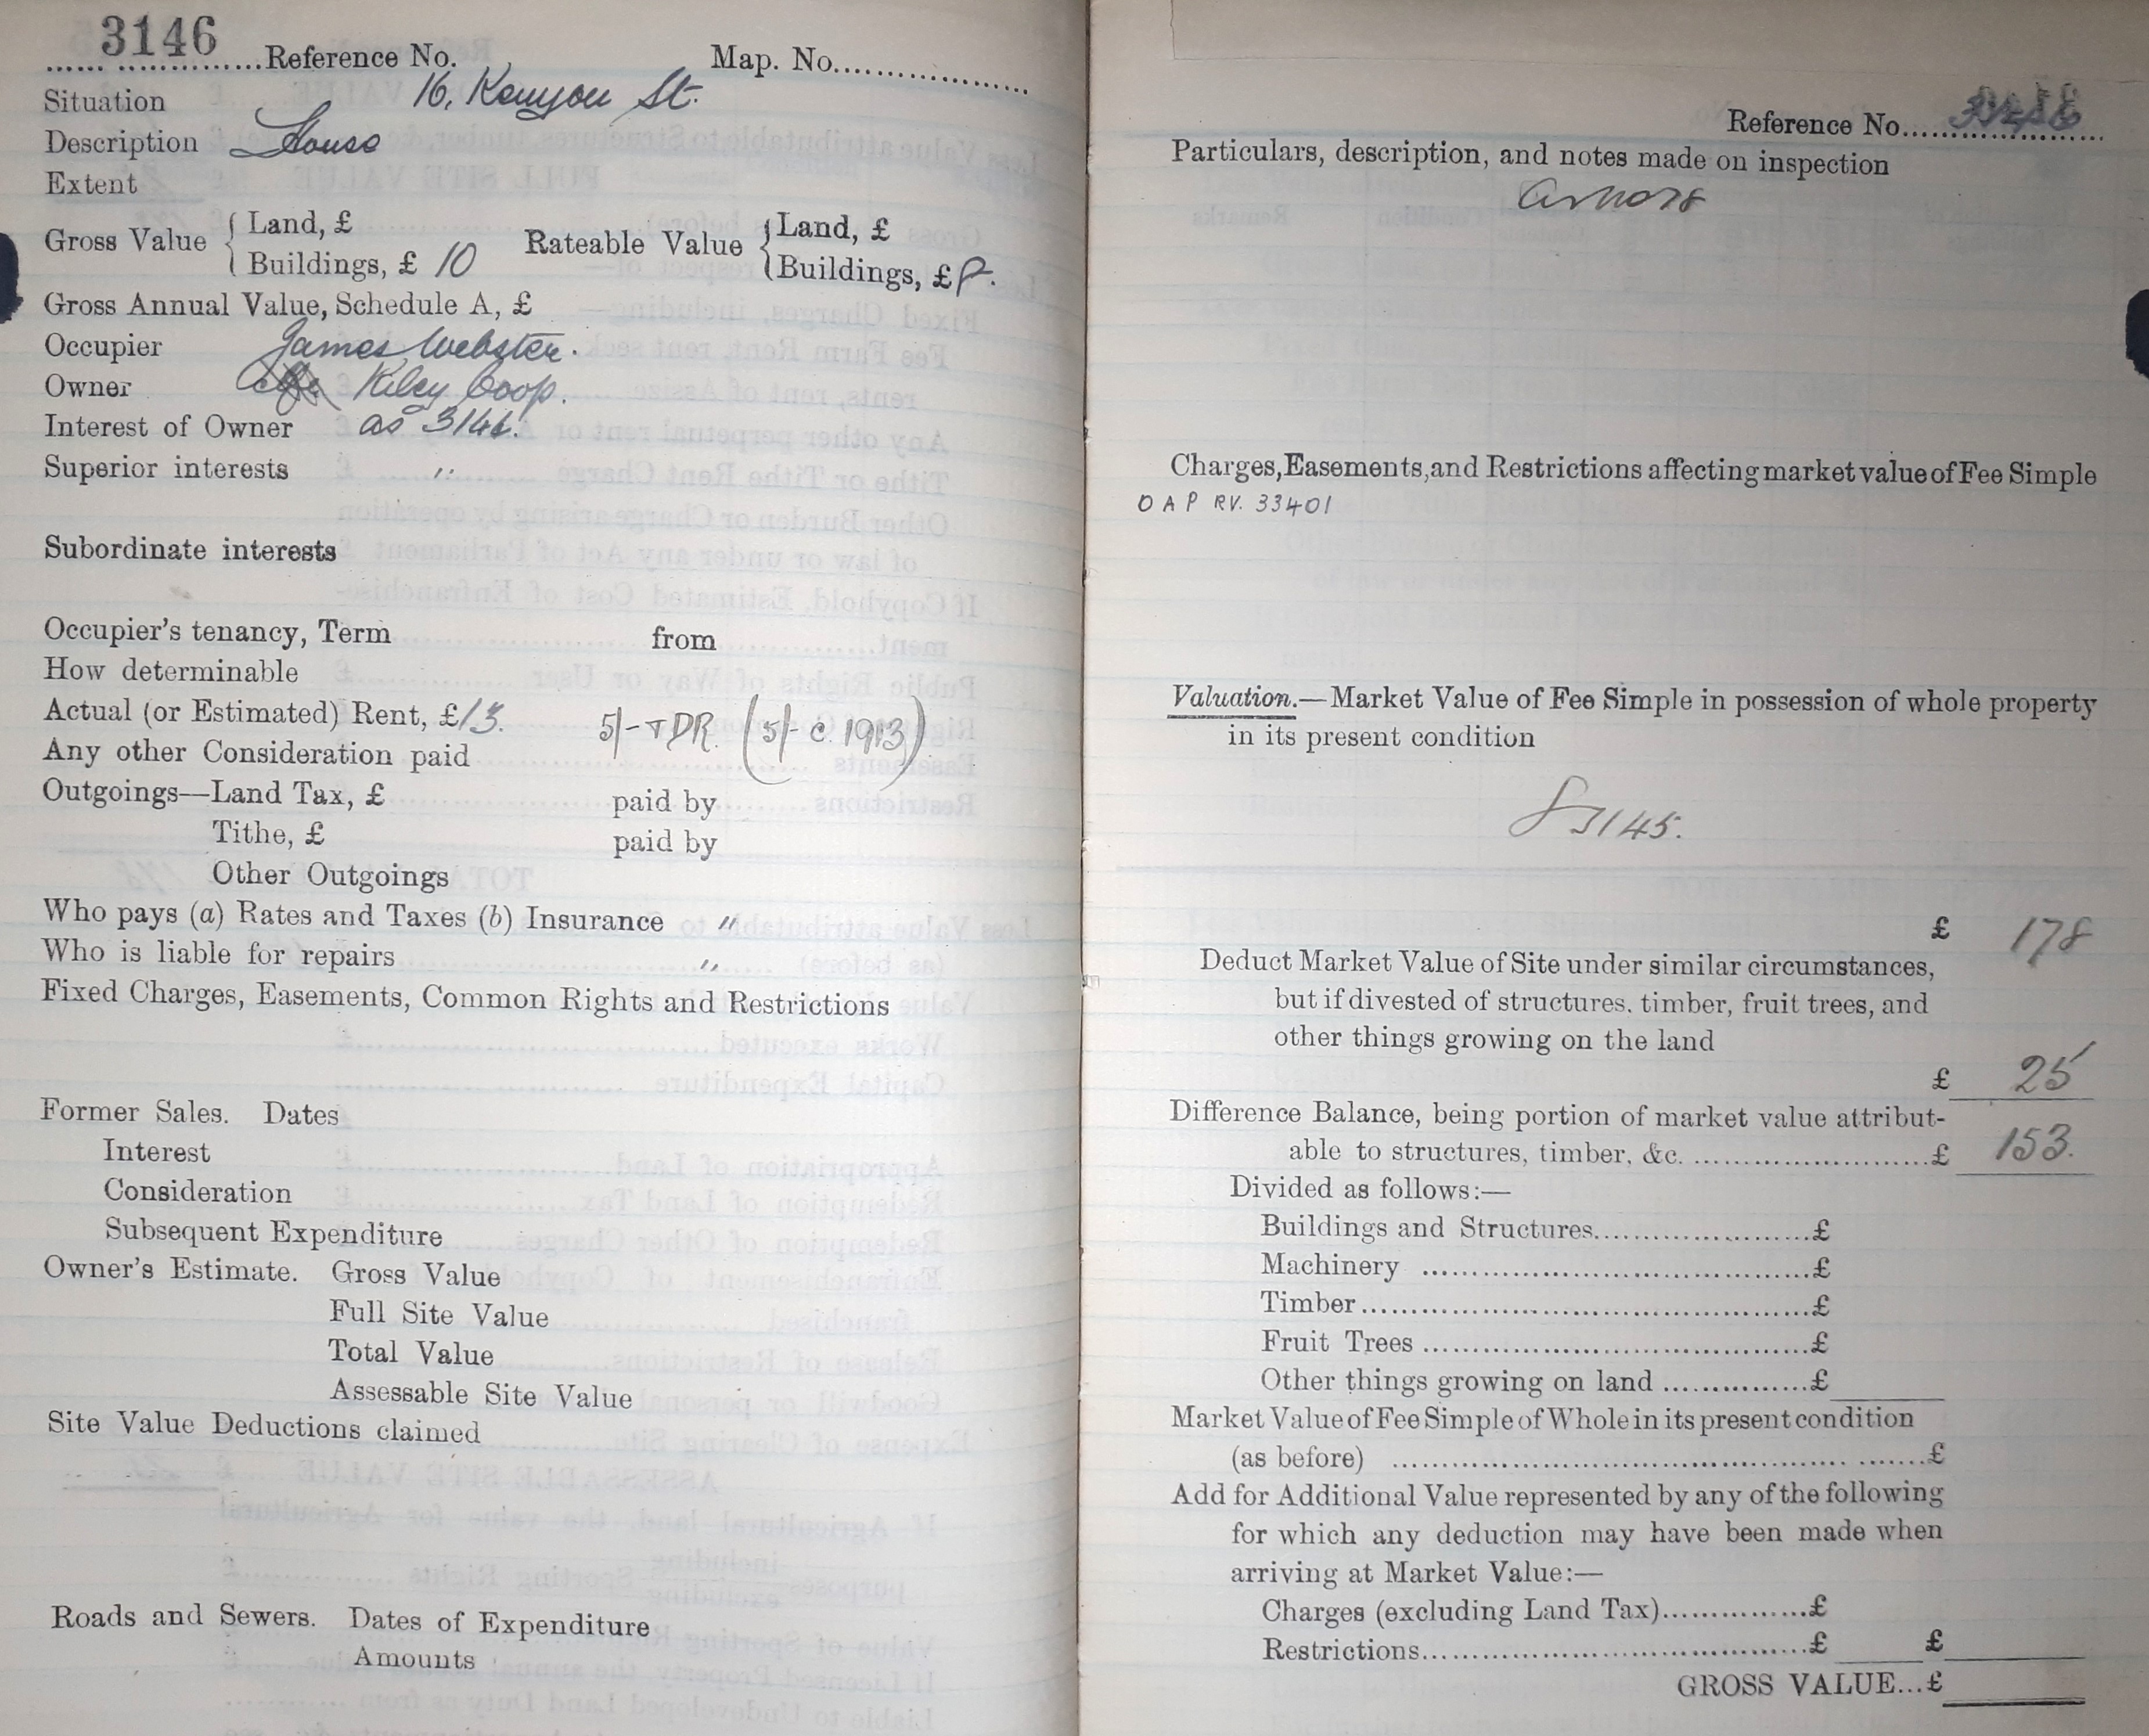 3146
Reference No. Map. No.
Situation 16, Kenyon St.
Description House
Extent
Gross Value { Land, £
Buildings, £ 10
Rateable Value { Land, £
Buildings, £ 8.
Gross Annual Value, Schedule A, £
Occupier James Webster.
Owner Riley Coop.
Interest of Owner as 3141.
Superior interests "
Subordinate interests
Occupier's tenancy, Term from
How determinable
Actual (or Estimated) Rent, £13. 5/- TDR. (5/- c. 1913)
Any other Consideration paid
Outgoings—Land Tax, £ paid by
Tithe, £ paid by
Other Outgoings
Who pays (a) Rates and Taxes (b) Insurance "
Who is liable for repairs "
Fixed Charges, Easements, Common Rights and Restrictions
Former Sales. Dates
Interest
Consideration
Subsequent Expenditure
Owner's Estimate. Gross Value
Full Site Value
Total Value
Assessable Site Value
Site Value Deductions claimed
Roads and Sewers. Dates of Expenditure
Amounts
Reference No.
Particulars, description, and notes made on inspection
Charges, Easements, and Restrictions affecting market value of Fee Simple
O A P RV. 33401
Valuation.—Market Value of Fee Simple in possession of whole property
in its present condition
3145.
£ 178
Deduct Market Value of Site under similar circumstances,
but if divested of structures, timber, fruit trees, and
other things growing on the land
£ 25
Difference Balance, being portion of market value attribut-
able to structures, timber, &c. £ 153.
Divided as follows:—
Buildings and Structures £
Machinery £
Timber £
Fruit Trees £
Other things growing on land £
Market Value of Fee Simple of Whole in its present condition
(as before) £
Add for Additional Value represented by any of the following
for which any deduction may have been made when
arriving at Market Value:—
Charges (excluding Land Tax) £
Restrictions £ £
GROSS VALUE...£